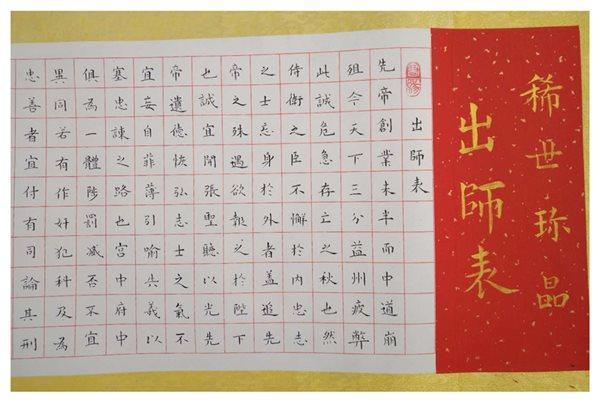 稀世珍品
出師表
出師表
先帝創業未半而中道崩
殂今天下三分益州疲弊
此誠危急存亡之秋也然
侍衛之臣不懈於內忠志
之士忘身於外者蓋追先
帝之殊遇欲報之於陛下
也誠宜開張聖聽以光先
帝遺德恢弘志士之氣不
宜妄自菲薄引喻失義以
塞忠諫之路也宮中府中
俱為一體陟罰臧否不宜
異同若有作奸犯科及為
忠善者宜付有司論其刑